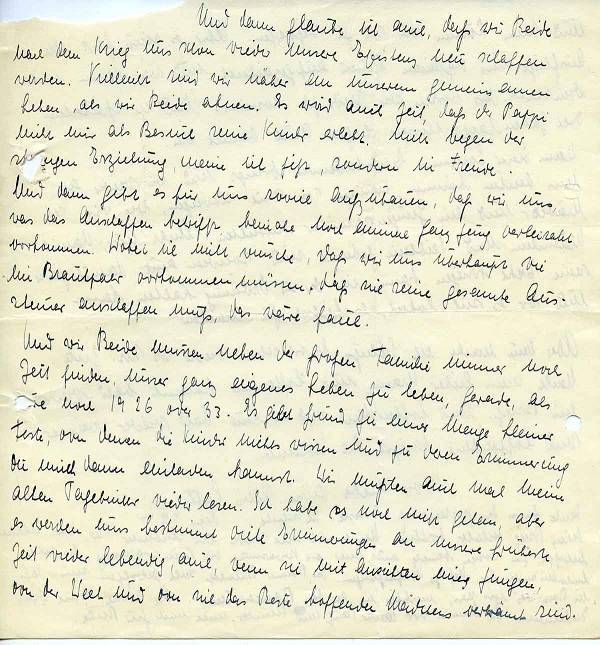 Und dann glaube ich auch, dass wir Beide
nach dem Krieg uns schon wieder unsere Existenz neu schaffen
werden. Vielleicht sind wir näher an unserem gemeinsamen
Leben, als wir Beide ahnen. Es wird auch Zeit, dass der Pappi
nicht nur als Besuch seine Kinder erlebt. Nicht wegen der
strengen Erziehung, meine ich jetzt, sondern zu Freude.
Und dann gibt es für uns soviel aufzubauen, dass wir uns,
was das Anschaffen betrifft, beinahe noch einmal ganz jung verheiratet
vorkommen. Wobei ich nicht wünsche, dass wir uns überhaupt wie
ein Brautpaar vorkommen müssen, das sich seine gesamte Aus-
steuer anschaffen muss, das wäre faul.
Und wir Beide müssen neben der grossen Familie immer noch
Zeit finden, unser ganz eigenes Leben zu leben, gerade, als
wäre noch 1926 oder 33. Es gibt Grund zu einer Menge kleiner
Feste, von denen die Kinder nichts wissen und zu deren Erinnerung
du mich dann einladen kannst. Wir müssten auch mal meine
alten Tagebücher wieder lesen. Ich habe es noch nicht getan, aber
es werden uns bestimmt viele Erinnerungen an unsere früheste
Zeit wieder lebendig auch, wenn sie mit Ansichten eines jungen,
von der Welt und von sich das Beste hoffenden Mädchens verbrämt sind.